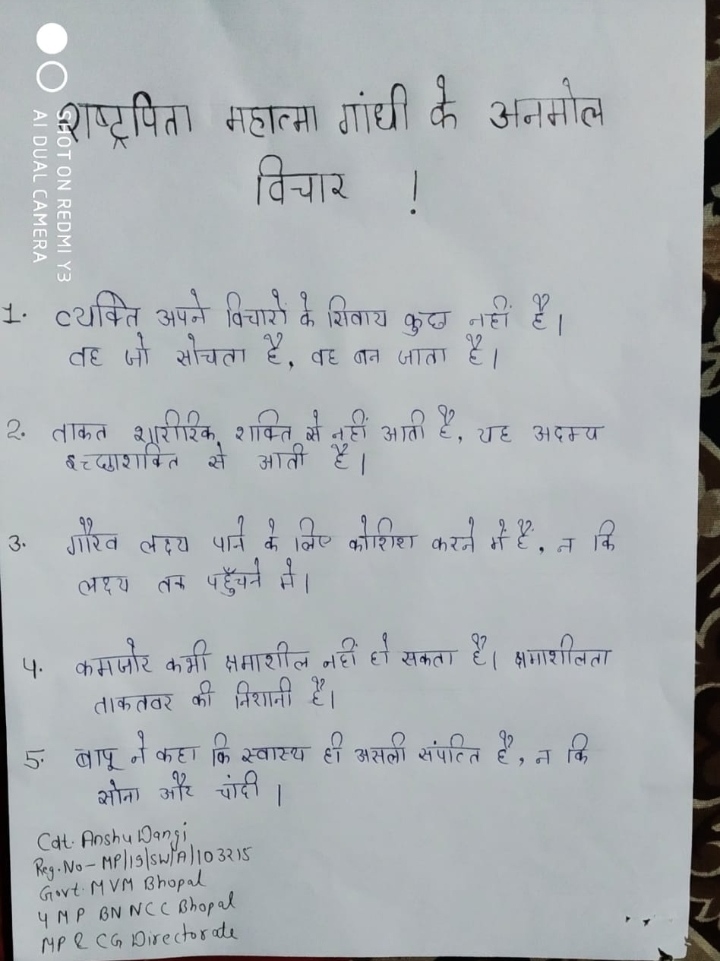 राष्ट्रपिता महात्मा गांधी के अनमोल
विचार !
1. व्यक्ति अपने विचारों के सिवाय कुछ नहीं है।
वह जो सोचता है, वह बन जाता है।
2. ताकत शारीरिक शक्ति से नहीं आती है, यह अदम्य
इच्छाशक्ति से आती है।
3. गौरव लक्ष्य पाने के लिए कोशिश करने में हैं, न कि
लक्ष्य तक पहुँचने मे।
4. कमजोर कभी क्षमाशील नहीं हो सकता है। क्षमाशीलता
ताकतवर की निशानी है।
5. बापू ने कहा कि स्वास्थ्य ही असली संपत्ति है, न कि
सोना और चांदी।
Cdt. Anshu Dangi
Reg. No - MP/19/SW/A/103215
Govt. MVM Bhopal
4 MP BN NCC Bhopal
MP & CG Directorate
SHOT ON REDMI Y3
AI DUAL CAMERA